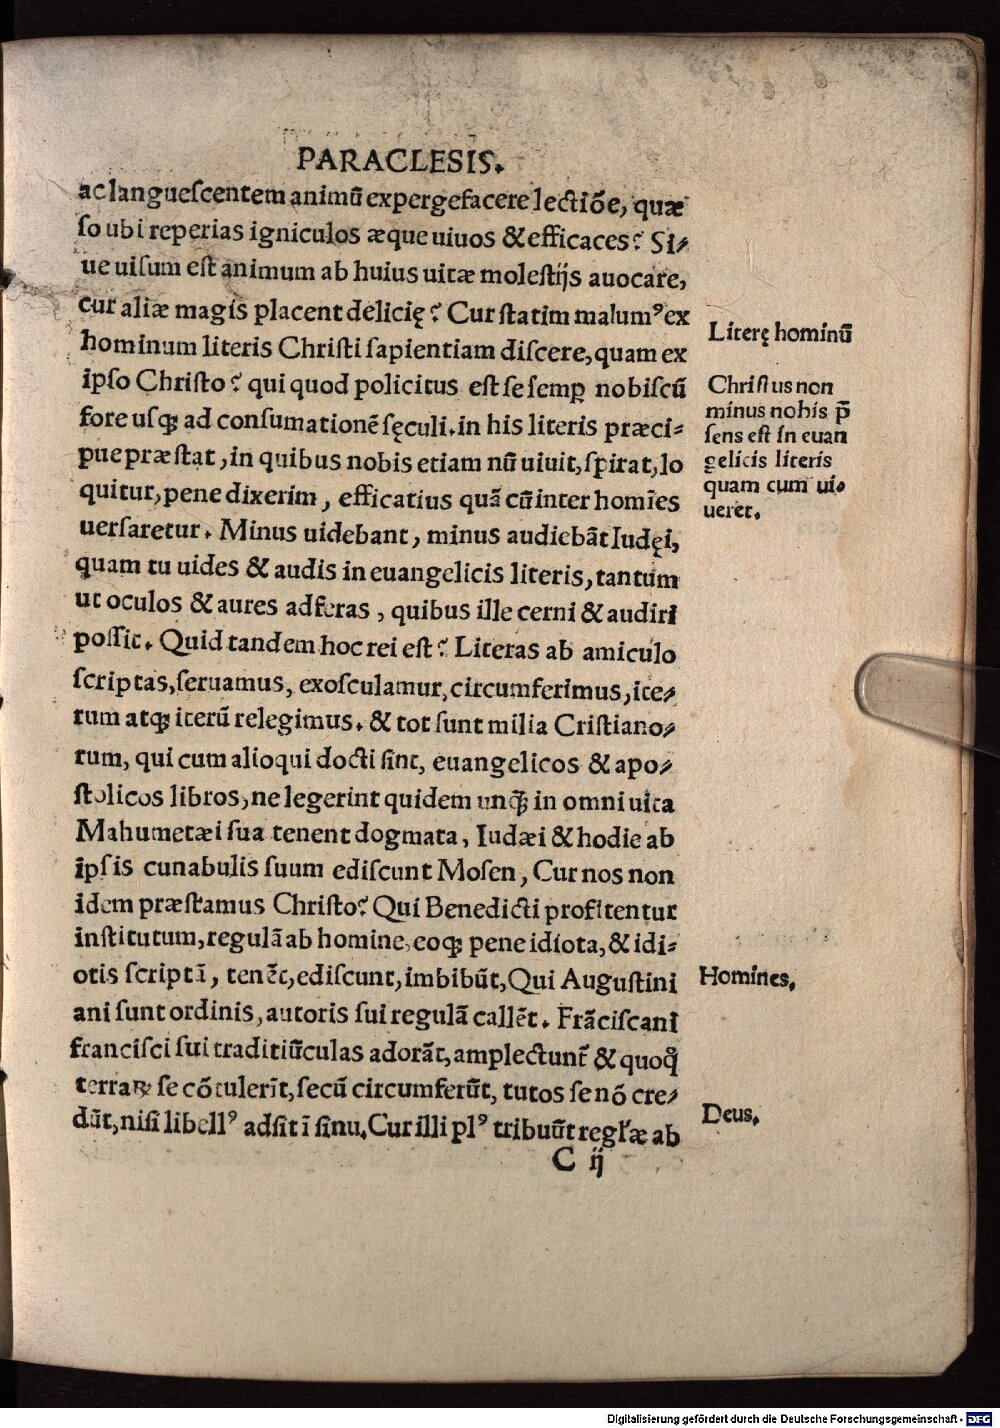 PARACLESIS.
ac langueſcentem animū expergefacere lectiōe, quæ
ſo ubi reperias igniculos æque uiuos & efficaces? Si⸗
ue uiſum eſt animum ab huius uitæ moleſtijs auocare,
cur aliæ magis placent delicię? Cur ſtatim malumꝰ ex
hominum literis Chriſti ſapientiam diſcere, quam ex
ipſo Chriſto? qui quod policitus eſt ſe ſemꝑ nobiſcū
fore uſqꝫ ad conſumationē ſęculi. in his literis præci⸗
pue præſtat, in quibus nobis etiam nū uiuit, ſpirat, lo
quitur, pene dixerim, efficatius quā cū inter homīes
uerſaretur. Minus uidebant, minus audiebāt Iudęi,
quam tu uides & audis in euangelicis literis, tantum
ut oculos & aures adferas, quibus ille cerni & audiri
poſſit. Quid tandem hoc rei eſt? Literas ab amiculo
ſcriptas, ſeruamus, exoſculamur, circumferimus, ite⸗
rum atqꝫ iterū relegimus. & tot ſunt milia Criſtiano⸗
rum, qui cum alioqui docti ſint, euangelicos & apo⸗
ſtolicos libros, ne legerint quidem unqꝫ̄ in omni uita
Mahumetæi ſua tenent dogmata, Iudæi & hodie ab
ipſis cunabulis ſuum ediſcunt Moſen, Cur nos non
idem præſtamus Chriſto? Qui Benedicti profitentur
inſtitutum, regulā ab homine, eoqꝫ pene idiota, & idi⸗
otis ſcriptā, tenēt, ediſcunt, imbibūt, Qui Auguſtini
ani ſunt ordinis, autoris ſui regulā callēt. Frāciſcani
franciſci ſui traditiūculas adorāt, amplectunt᷑ & quoqꝫ̄
terraꝝ ſe cōtulerīt, ſecū circumferūt, tutos ſe nō cre⸗
dūt, niſi libellꝰ adſit ī ſinu. Cur illi plꝰ tribuūt reglæ ab
C ij
Literę hominū
Chriſtus non
minus nobis p̄
ſens eſt in euan
gelicis literis
quam cum ui⸗
ueret.
Homines.
Deus.
Digitalisierung gefördert durch die Deutsche Forschungsgemeinschaft - DFG